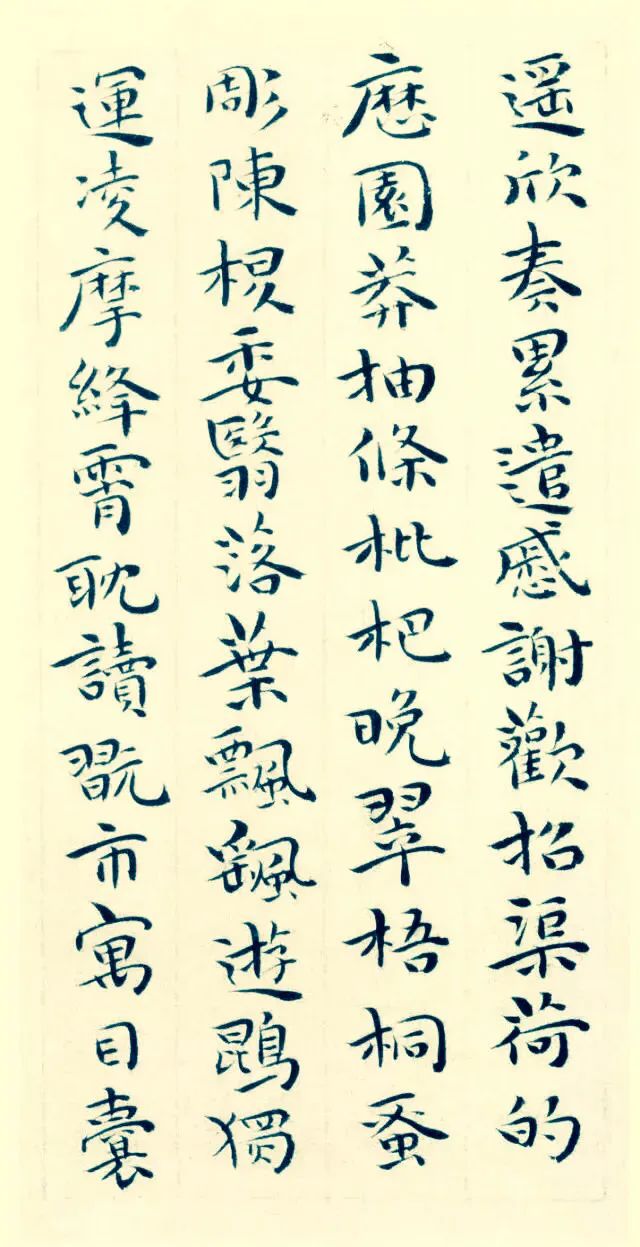 遥欣奏累遣慼謝歡招渠荷的
歷園莽抽條枇杷晚翠梧桐蚤
彫陳根委翳落葉飄颻遊鵾獨
運凌摩絳霄耽讀翫市寓目囊